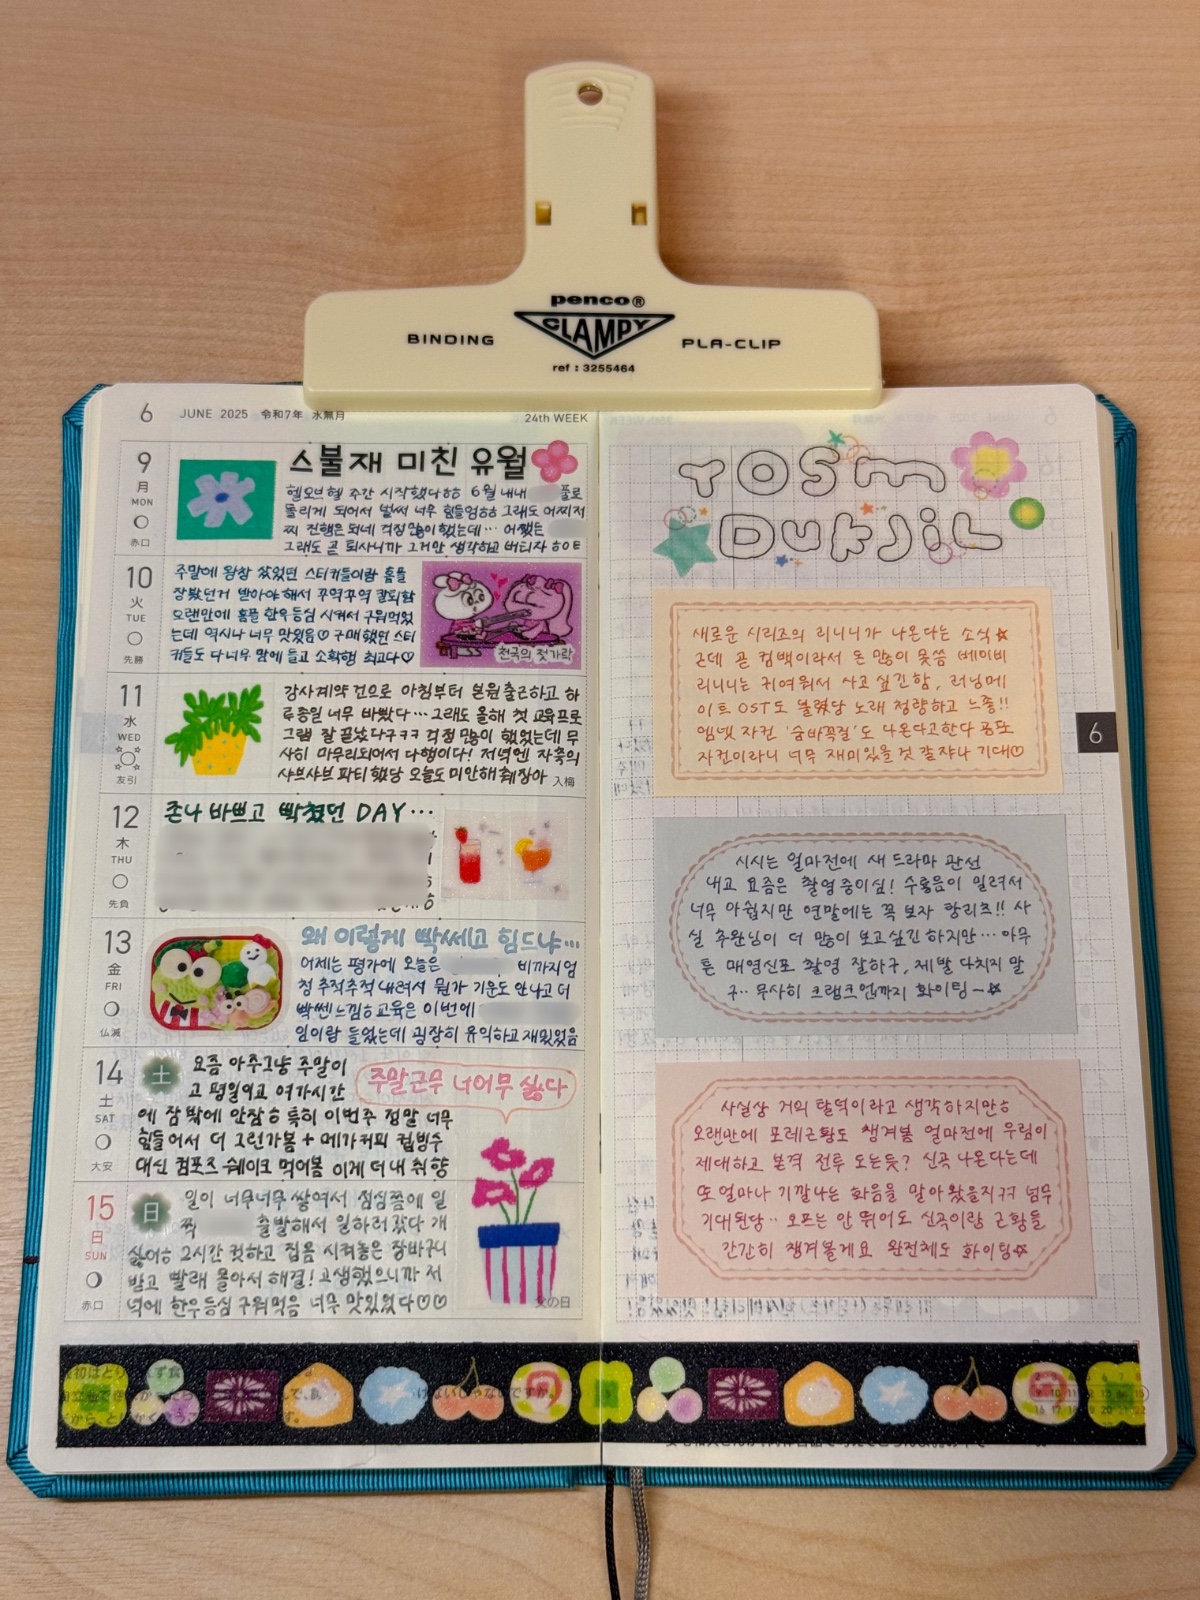 penco®
CLAMPY
BINDING
PLA-CLIP
ref : 3255464
6 JUNE 2025 令和7年 水無月
24th WEEK
9
月
MON
赤口
스불재 미친 유월
헬오브헬 주간 시작했다ㅎㅎ 6월 내내 풀로
몰리게 되어서 벌써 너무 힘들엉ㅎㅎ 그래도 어찌저
찌 진행은 되네 걱정 많이 했는데… 어쨌든
그래도 곧 퇴사니까 그거만 생각하고 버티자 ㅎㅇㅌ
10
火
TUE
先勝
주말에 왕창 샀었던 스티커들이랑 홈플
장봤던거 받아야 해서 꾸역꾸역 칼퇴함
오랜만에 홈플 한우등심 시켜서 구워먹었
는데 역시나 너무 맛있음♡ 구매했던 스티
커들도 다 너무 맘에 들고 소확행 최고다♡
천국의 젓가락
11
水
WED
友引
강사계약 건으로 아침부터 본원출근하고 하
루종일 너무 바빴다… 그래도 올해 첫 교육프로
그램 잘 끝났다ㅋㅋㅋ 걱정 많이 했었는데 무
사히 마무리되어서 다행이다! 저녁엔 자축의
샤브샤브 파티 했당 오늘도 미안해 췌장아
入梅
12
木
THU
先負
존나 바쁘고 빡쳤던 DAY…
13
金
FRI
仏滅
왜 이렇게 빡쎄고 힘드냐…
어제는 평가에 오늘은 비까지 엄
청 추적추적 내려서 뭔가 기운도 안나고 더
빡쎈 느낌ㅎ 교육은 이번에
임이랑 들었는데 굉장히 유익하고 재밌었음
14
土
SAT
大安
土
요즘 아주그냥 주말이
고 평일이고 여가시간
에 잠 밖에 안잠ㅎ 특히 이번주 정말 너무
힘들어서 더 그런가봄 + 메가커피 컵빙수
대신 컴포즈 쉐이크 먹어봄 이게 더 내 취향
주말근무 너어무 싫다
15
日
SUN
赤口
日
일이 너무너무 쌓여서 점심쯤에 일
찍 출발해서 일하러 갔다 개
싫어ㅎ 2시간 컷하고 집옴 시켜놓은 장바구니
받고 빨래 몰아서 해결! 고생했으니까 저
녁에 한우등심 구워먹음 너무 맛있었다♡♡
父の日
TOSM
DUKJIL
새로운 시리즈의 리니니가 나온다는 소식☆
근데 곧 컴백이라서 돈 많이 못씀 베이비
리니니는 귀여워서 사고 싶긴함, 러닝메
이트 OST도 불렀당 노래 청량하고 느좋!!
엠넷 자컨 '숨바꼭질'도 나온다고한다 공포
자컨이라니 너무 재미있을 것 같쟈나 기대♡
6
시시는 얼마전에 새 드라마 관선
내고 요즘은 촬영중이심! 수룡음이 밀려서
너무 아쉽지만 연말에는 꼭 보자 항리츠!! 사
실 추완님이 더 많이 보고싶긴 하지만… 아무
튼 매영신포 촬영 잘하구, 제발 다치지 말
구.. 무사히 크랭크업까지 화이팅~☆
사실상 거의 탈덕이라고 생각하지만ㅎ
오랜만에 포레근황도 챙겨봄 얼마전에 우림이
제대하고 본격 전투 도는듯? 신곡 나온다는데
또 얼마나 기깔나는 화음을 말아왔을지ㅋㅋ 넘무
기대된당.. 오프는 안 뛰어도 신곡이랑 근황들
간간히 챙겨볼게요 완전체도 화이팅☆